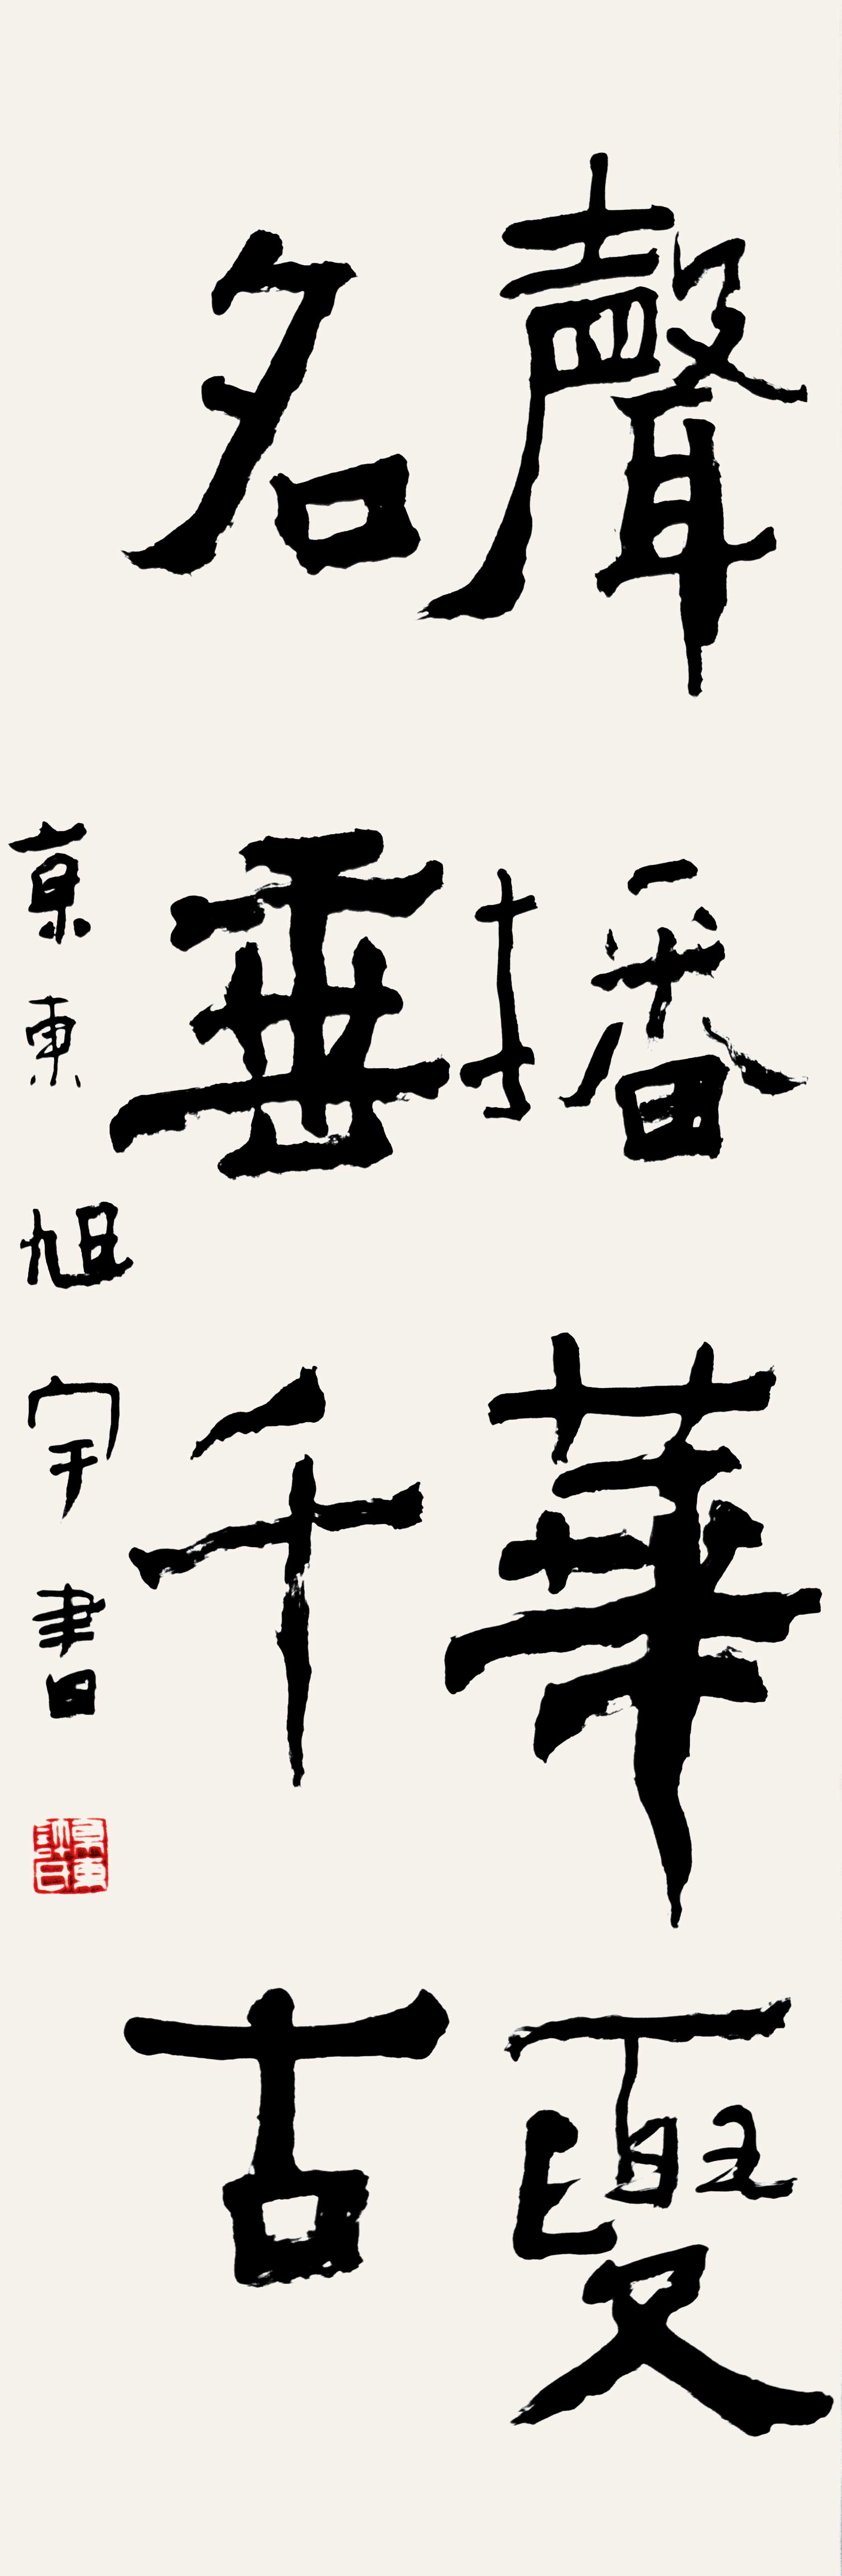 聲播華夏
名垂千古
京東旭宇書